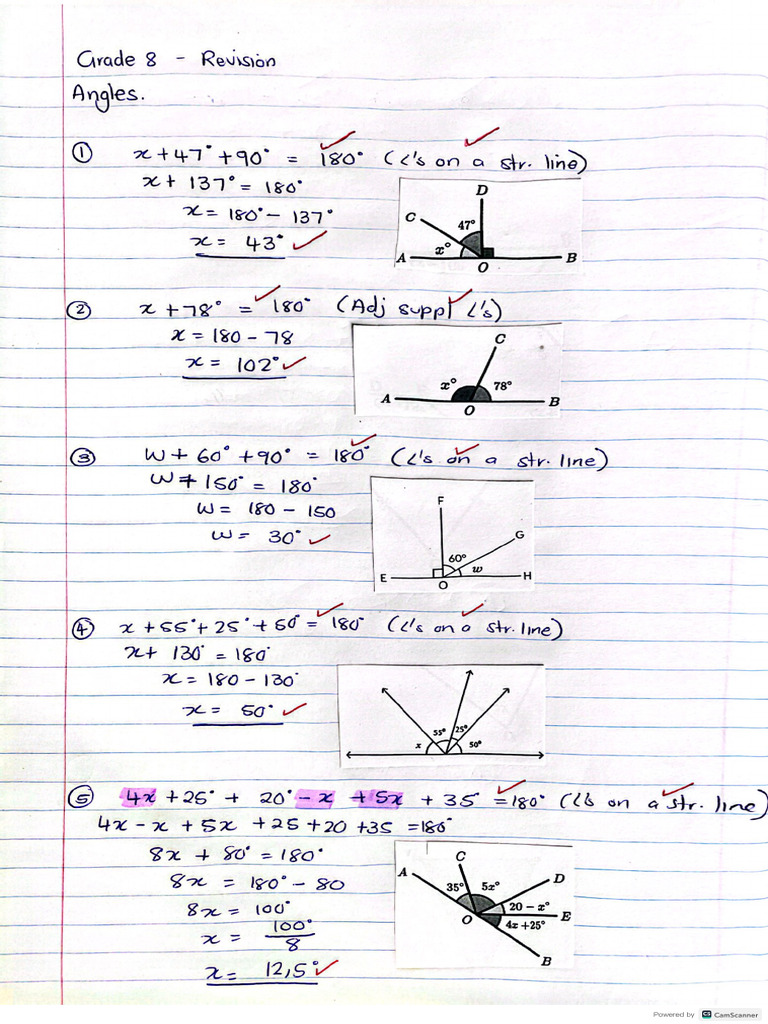 Grade 8 - Revision
Angles.
① x + 47° + 90° = 180° (∠'s on a str. line)
x + 137° = 180°
x = 180° - 137°
x = 43°
D
C
47°
x°
A
O
B
② x + 78° = 180° (Adj suppl ∠'s)
x = 180 - 78
x = 102°
C
x°
78°
A
O
B
③ w + 60° + 90° = 180° (∠'s on a str. line)
w + 150° = 180°
w = 180 - 150
w = 30°
F
G
60°
w
E
O
H
④ x + 55° + 25° + 50° = 180° (∠'s on a str. line)
x + 130° = 180°
x = 180 - 130°
x = 50°
55°
25°
x
50°
⑤ 4x + 25° + 20° - x + 5x + 35° = 180° (∠'s on a str. line)
4x - x + 5x + 25 + 20 + 35 = 180°
8x + 80° = 180°
8x = 180° - 80
8x = 100°
x = 100°/8
x = 12,5°
C
A
D
35°
5x°
20 - x°
O
E
4x + 25°
B
Powered by CS CamScanner